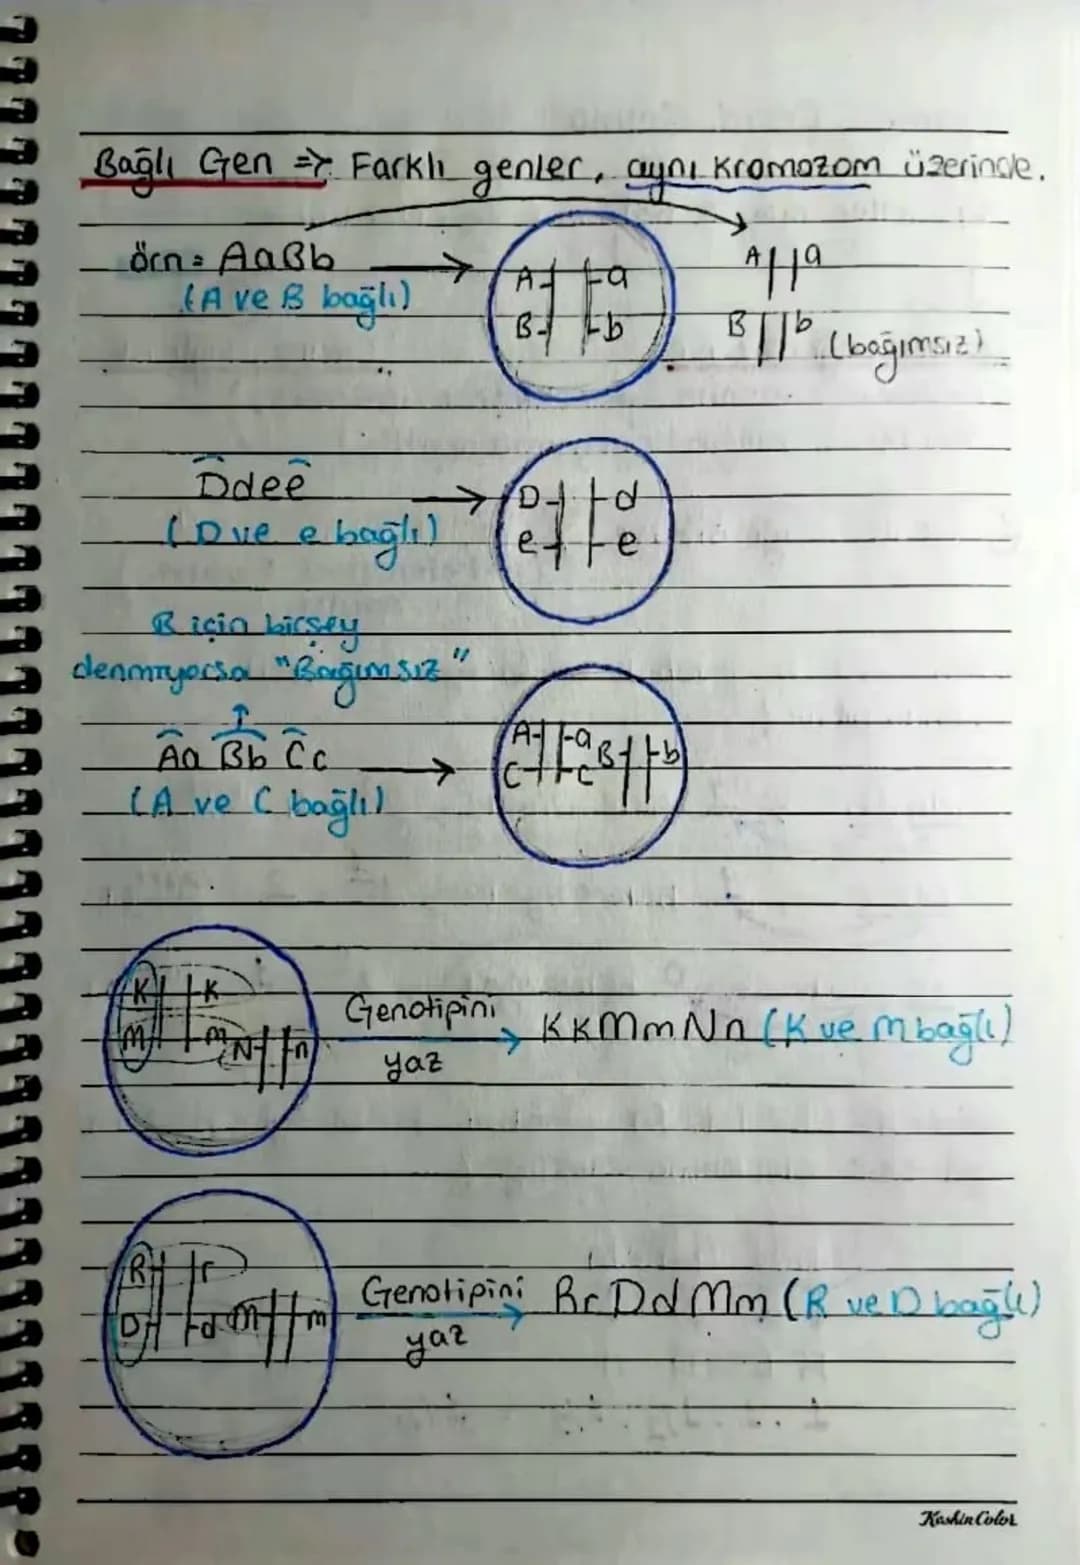 Bağlı Gen => Farklı genler, aynı kromozom üzerinde.
örn = AaBb
(A ve B bağlı)
A a
B b
A a
B b (bağımsız)
Ddee
(D ve e bağlı)
D d
e e
B için birşey
denmiyorsa "Bağımsız"
Aa Bb Cc
(A ve C bağlı)
A a B b
C c
K k
M m N n
Genotipini
yaz
KkMmNn (K ve M bağlı)
R r
D d M m
Genotipini
yaz
RrDdMm (R ve D bağlı)
KashinColor